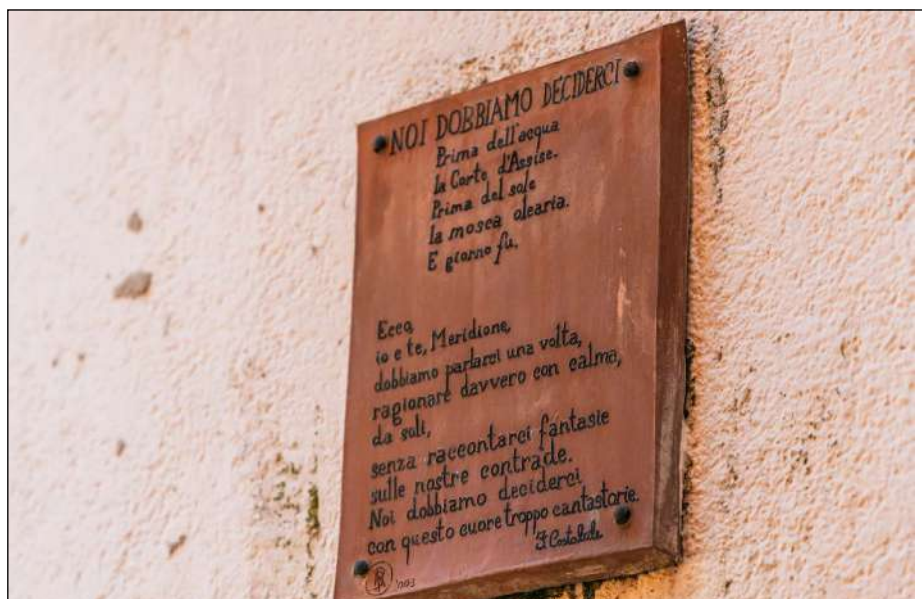 NOI DOBBIAMO DECIDERCI
Prima dell'acqua
la Corte d'Assise.
Prima del sole
la mosca olearia.
E giorno fu.
Ecco,
io e te, Meridione,
dobbiamo parlarci una volta,
ragionare davvero con calma,
da soli,
senza raccontarci fantasie
sulle nostre contrade.
Noi dobbiamo deciderci
con questo cuore troppo cantastorie.
F. Costabile